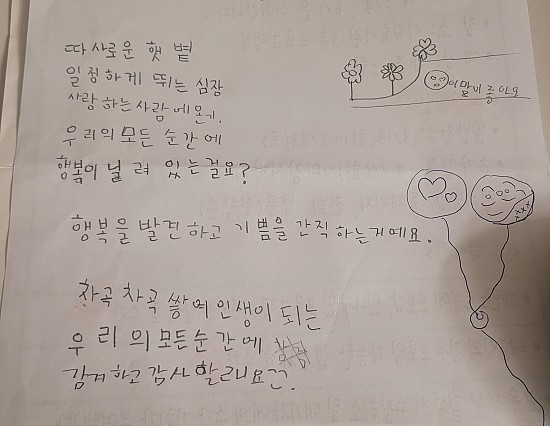 따사로운 햇볕
일정하게 뛰는 심장
사랑하는사람에온기.
우리의모든 순간에
행복이 널려 있는걸요?
이말이좋아요
행복을 발견하고 기쁨을 간직하는거예요.
차곡차곡 쌓여인생이 되는
우리의모든순간에
감격하고감사할래요